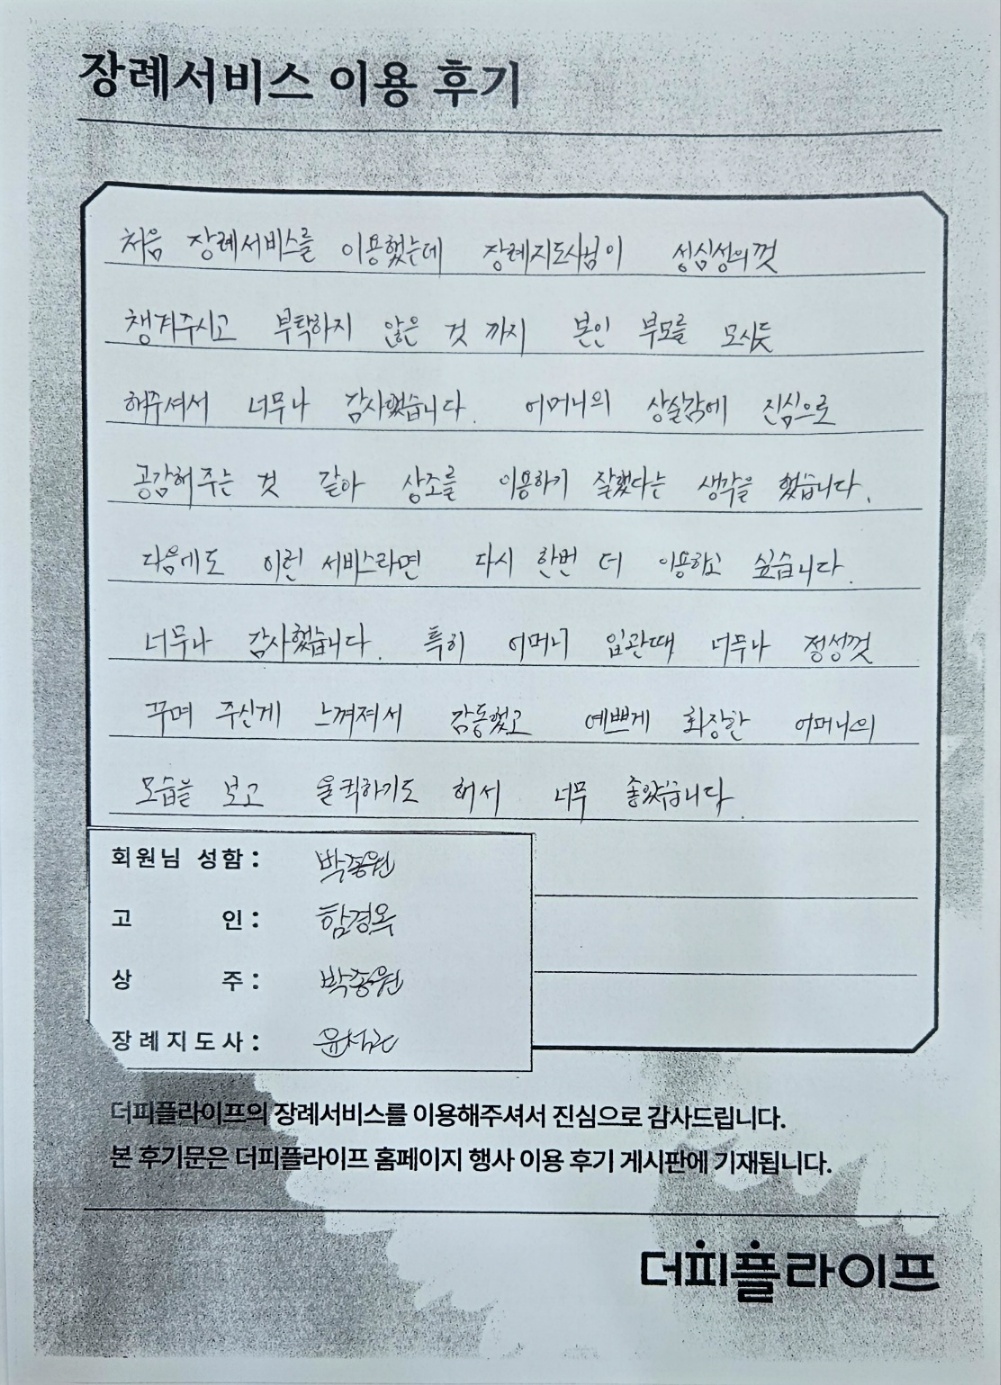 장례서비스 이용 후기
처음 장례서비스를 이용했는데 장례지도사님이 성심성의껏
챙겨주시고 부탁하지 않은 것 까지 본인 부모를 모시듯
해주셔서 너무나 감사했습니다. 어머니의 상실감에 진심으로
공감해주는 것 같아 상조를 이용하기 잘했다는 생각을 했습니다.
다음에도 이런 서비스라면 다시 한번 더 이용하고 싶습니다.
너무나 감사했습니다. 특히 어머니 입관때 너무나 정성껏
꾸며 주신게 느껴져서 감동했고 예쁘게 화장한 어머니의
모습을 보고 울컥하기도 해서 너무 좋았습니다.
회원님 성함 : 박종원
고 인 : 함경옥
상 주 : 박종원
장례지도사 :
더피플라이프의 장례서비스를 이용해주셔서 진심으로 감사드립니다.
본 후기문은 더피플라이프 홈페이지 행사 이용 후기 게시판에 기재됩니다.
더피플라이프